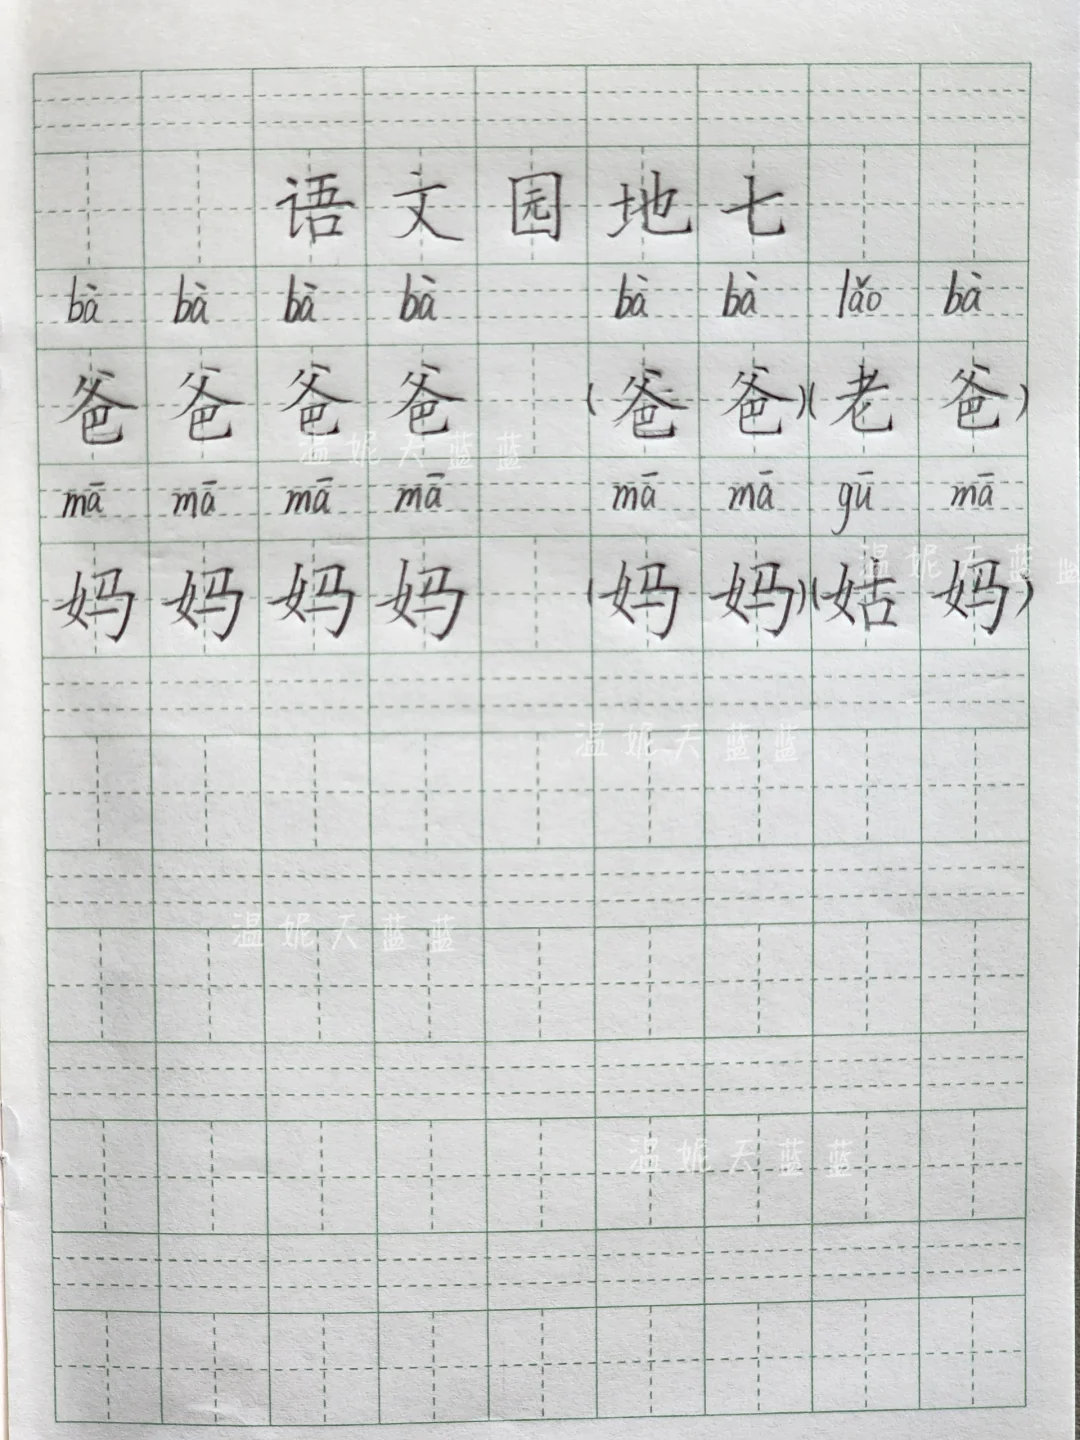 语文园地七
bà bà bà bà bà bà lǎo bà
爸爸爸爸 (爸爸)(老爸)
mā mā mā mā mā mā gū mā
妈妈妈妈 (妈妈)(姑妈)
温妮天蓝蓝
温妮天蓝蓝
温妮天蓝蓝
温妮天蓝蓝
温妮天蓝蓝